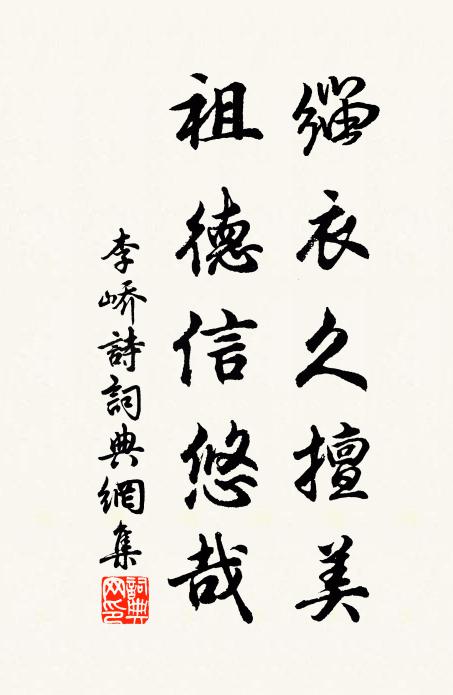 緇衣久擅美
祖德信悠哉
李嶠詩詞典網集
詞典網印